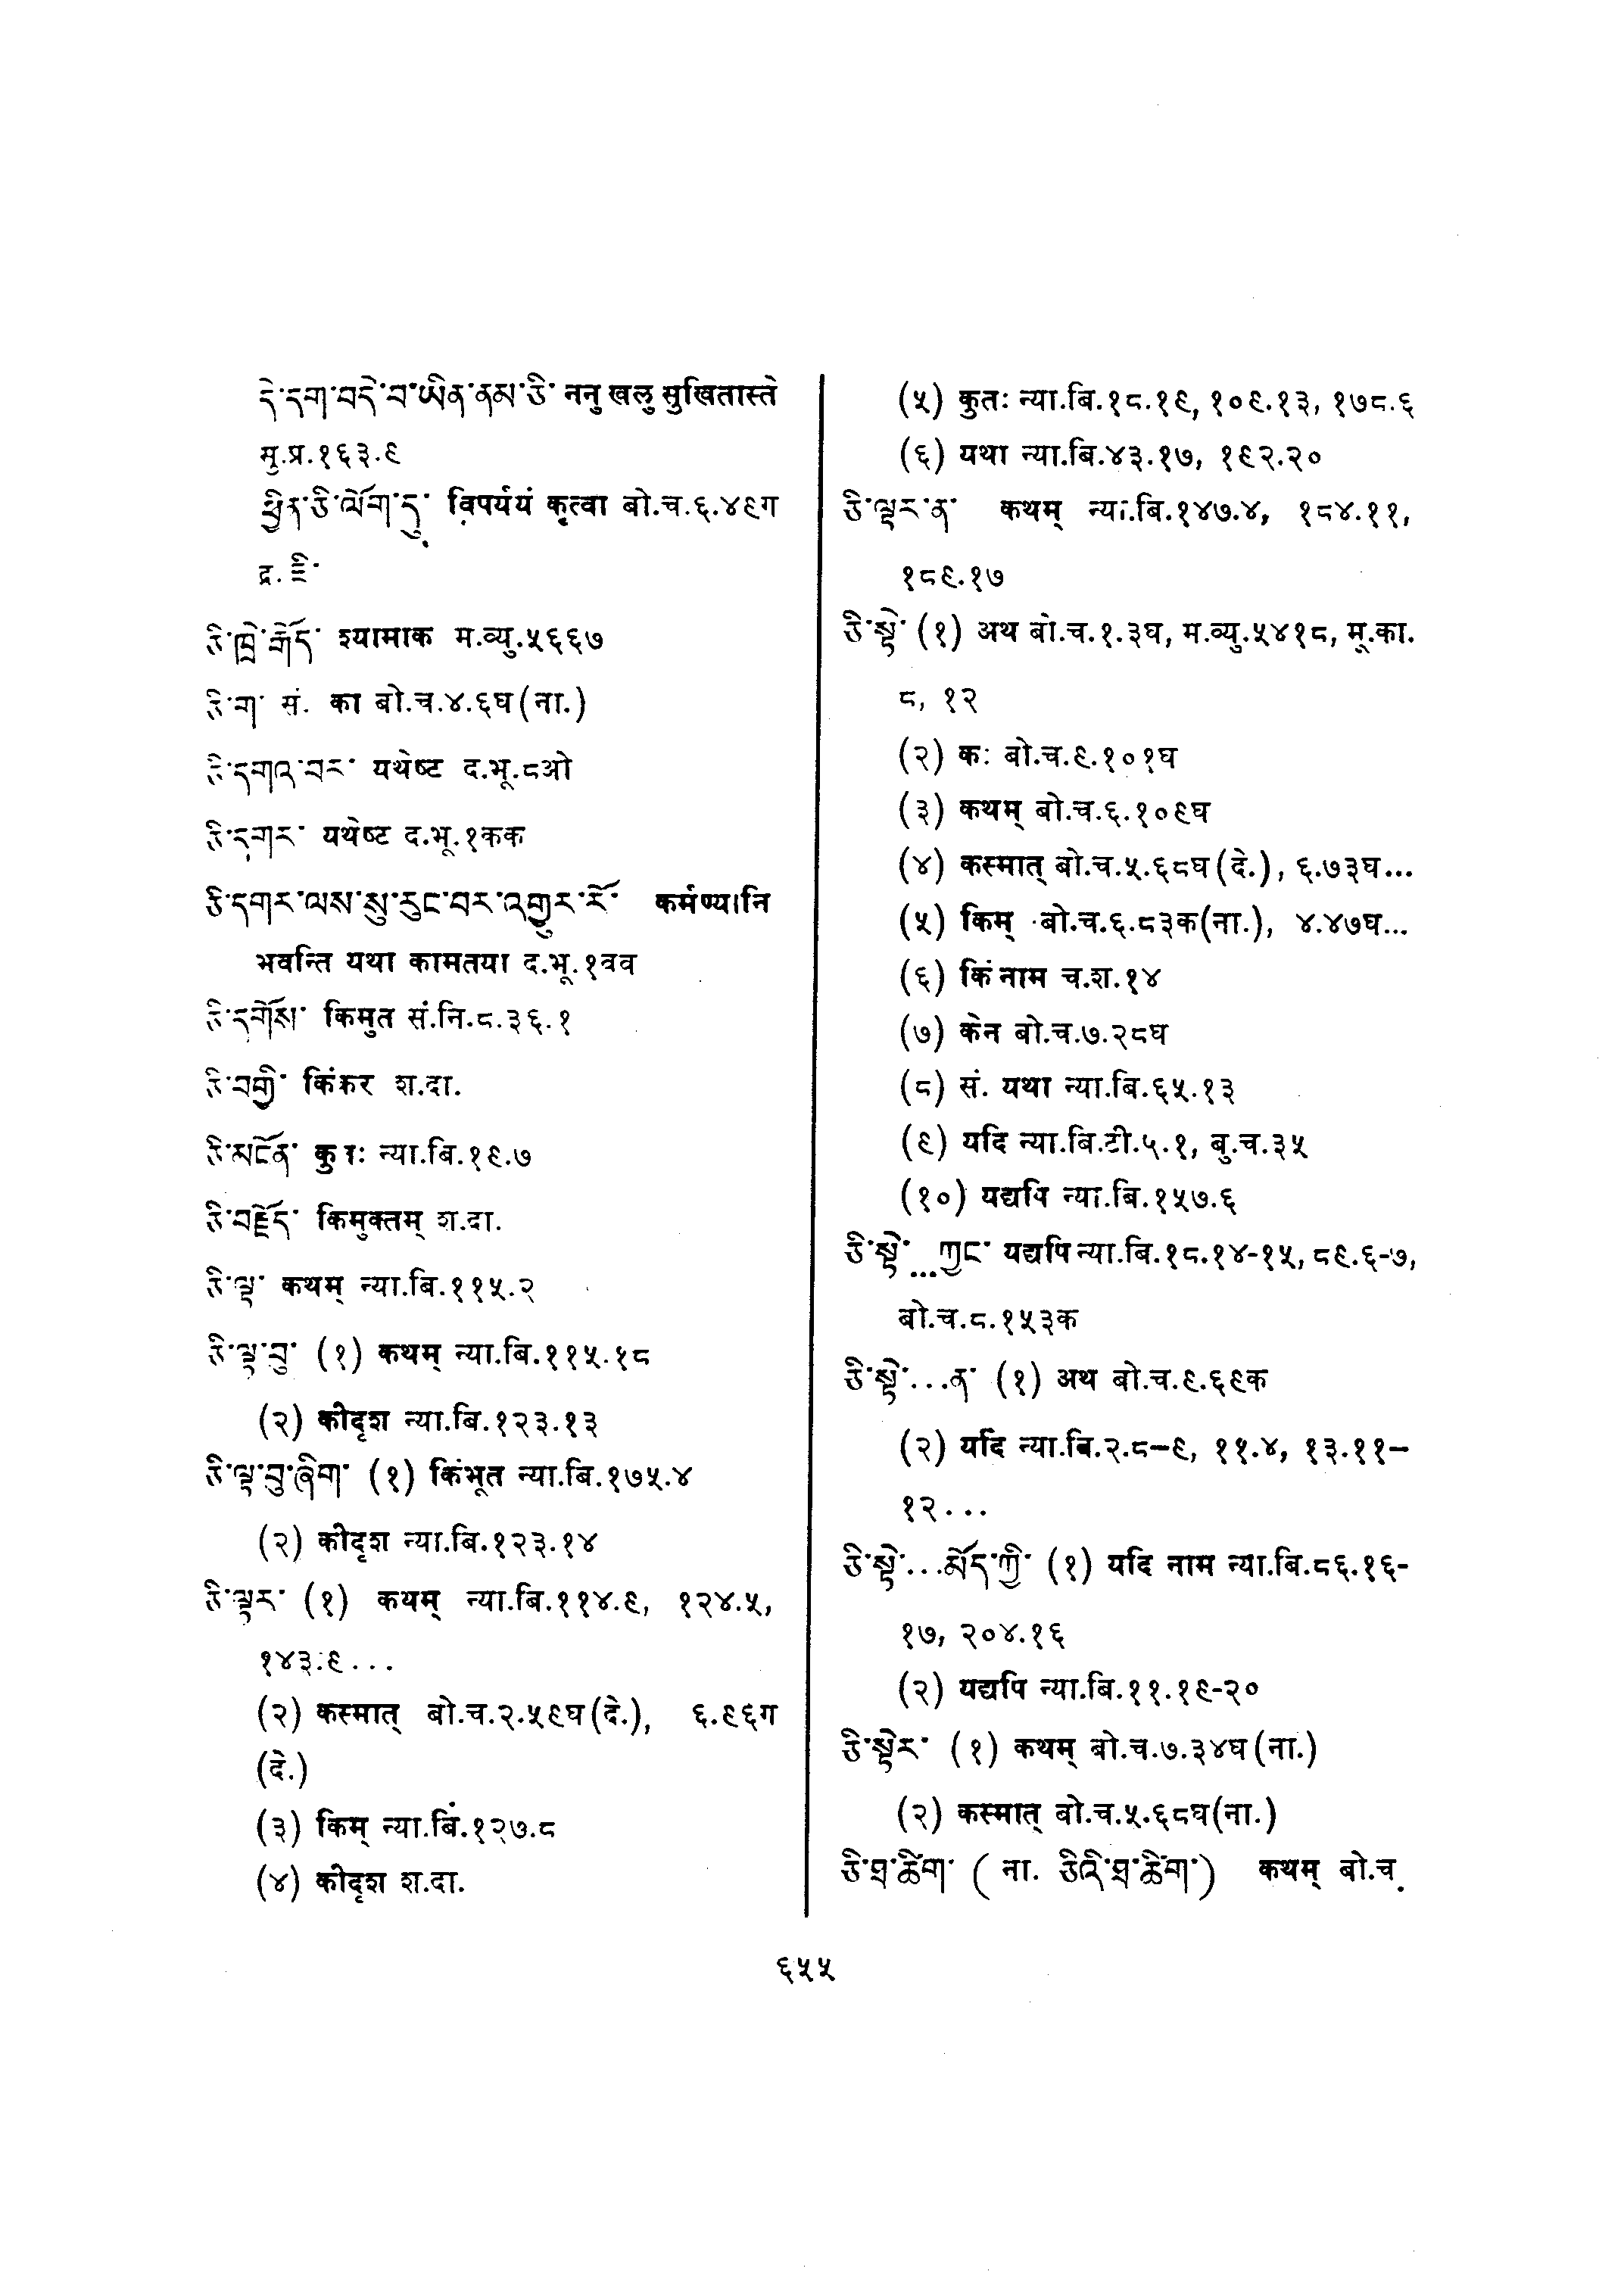 དེ་དག་བདེ་བ་ཡིན་ནམ་ཅི་ ननु खलु सुखितास्ते
मु.प्र.१६३.९
ཕྱིན་ཅི་ལོག་ཏུ་ विपर्ययं कृत्वा बो.च.६.४९ग
द्र. ཇི་
ཅི་ཁྲེ་རྒོད་ श्यामाक म.व्यु.५६६७
ཅི་ག་ सं. का बो.च.४.६घ(ना.)
ཅི་དགའ་བར་ यथेष्ट द.भू.८ओ
ཅི་དགར་ यथेष्ट द.भू.१कक
ཅི་དགར་ལས་སུ་རུང་བར་འགྱུར་རོ་ कर्मण्यानि
भवन्ति यथा कामतया द.भू.१त्रव
ཅི་དགོས་ किमुत सं.नि.८.३६.१
ཅི་བགྱི་ किंकर श.दा.
ཅི་མངོན་ कुतः न्या.बि.१९.७
ཅི་བརྗོད་ किमुक्तम् श.दा.
ཅི་ལྟ་ कथम् न्या.बि.११५.२
ཅི་ལྟ་བུ་ (१) कथम् न्या.बि.११५.१८
(२) कीदृश न्या.बि.१२३.१३
ཅི་ལྟ་བུ་ཞིག་ (१) किंभूत न्या.बि.१७५.४
(२) कीदृश न्या.बि.१२३.१४
ཅི་ལྟར་ (१) कथम् न्या.बि.११४.९, १२४.५,
१४३.९...
(२) कस्मात् बो.च.२.५९घ(दे.), ६.९६ग
(दे.)
(३) किम् न्या.बिं.१२७.८
(४) कीदृश श.दा.
(५) कुतः न्या.बि.१८.१९, १०९.१३, १७८.६
(६) यथा न्या.बि.४३.१७, १९२.२०
ཅི་ལྟར་ན་ कथम् न्या.बि.१४७.४, १८४.११,
१८९.१७
ཅི་སྟེ་ (१) अथ बो.च.१.३घ, म.व्यु.५४१८, मू.का.
८, १२
(२) कः बो.च.९.१०१घ
(३) कथम् बो.च.६.१०९घ
(४) कस्मात् बो.च.५.६८घ(दे.), ६.७३घ...
(५) किम् बो.च.६.८३क(ना.), ४.४७घ...
(६) किं नाम च.श.१४
(७) केन बो.च.७.२८घ
(८) सं. यथा न्या.बि.६५.१३
(९) यदि न्या.बि.टी.५.१, बु.च.३५
(१०) यद्यपि न्या.बि.१५७.६
ཅི་སྟེ་...ཀྱང་ यद्यपि न्या.बि.१८.१४-१५, ८९.६-७,
बो.च.८.१५३क
ཅི་སྟེ་...ན་ (१) अथ बो.च.९.६९क
(२) यदि न्या.बि.२.८–९, ११.४, १३.११–
१२...
ཅི་སྟེ་...མོད་ཀྱི་ (१) यदि नाम न्या.बि.८६.१६-
१७, २०४.१६
(२) यद्यपि न्या.बि.११.१९-२०
ཅི་སྟེར་ (१) कथम् बो.च.७.३४घ(ना.)
(२) कस्मात् बो.च.५.६८घ(ना.)
ཅི་ཐ་ཚིག་ (ना. ཅིའི་ཐ་ཚིག་) कथम् बो.च.
६५५